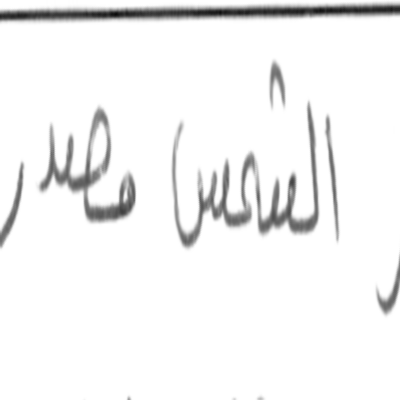 الشمس مصدر